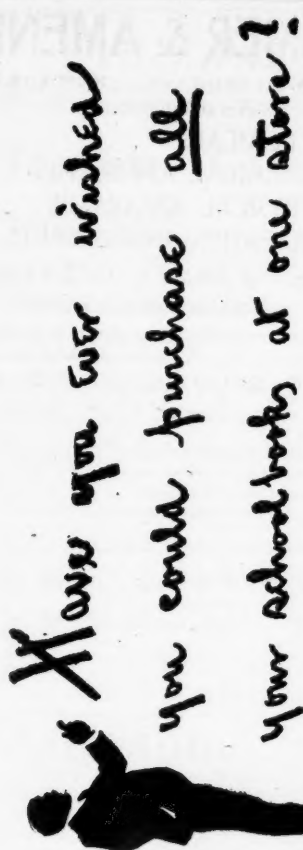 Have you ever wished
you could purchase all
your schoolbooks at one store?